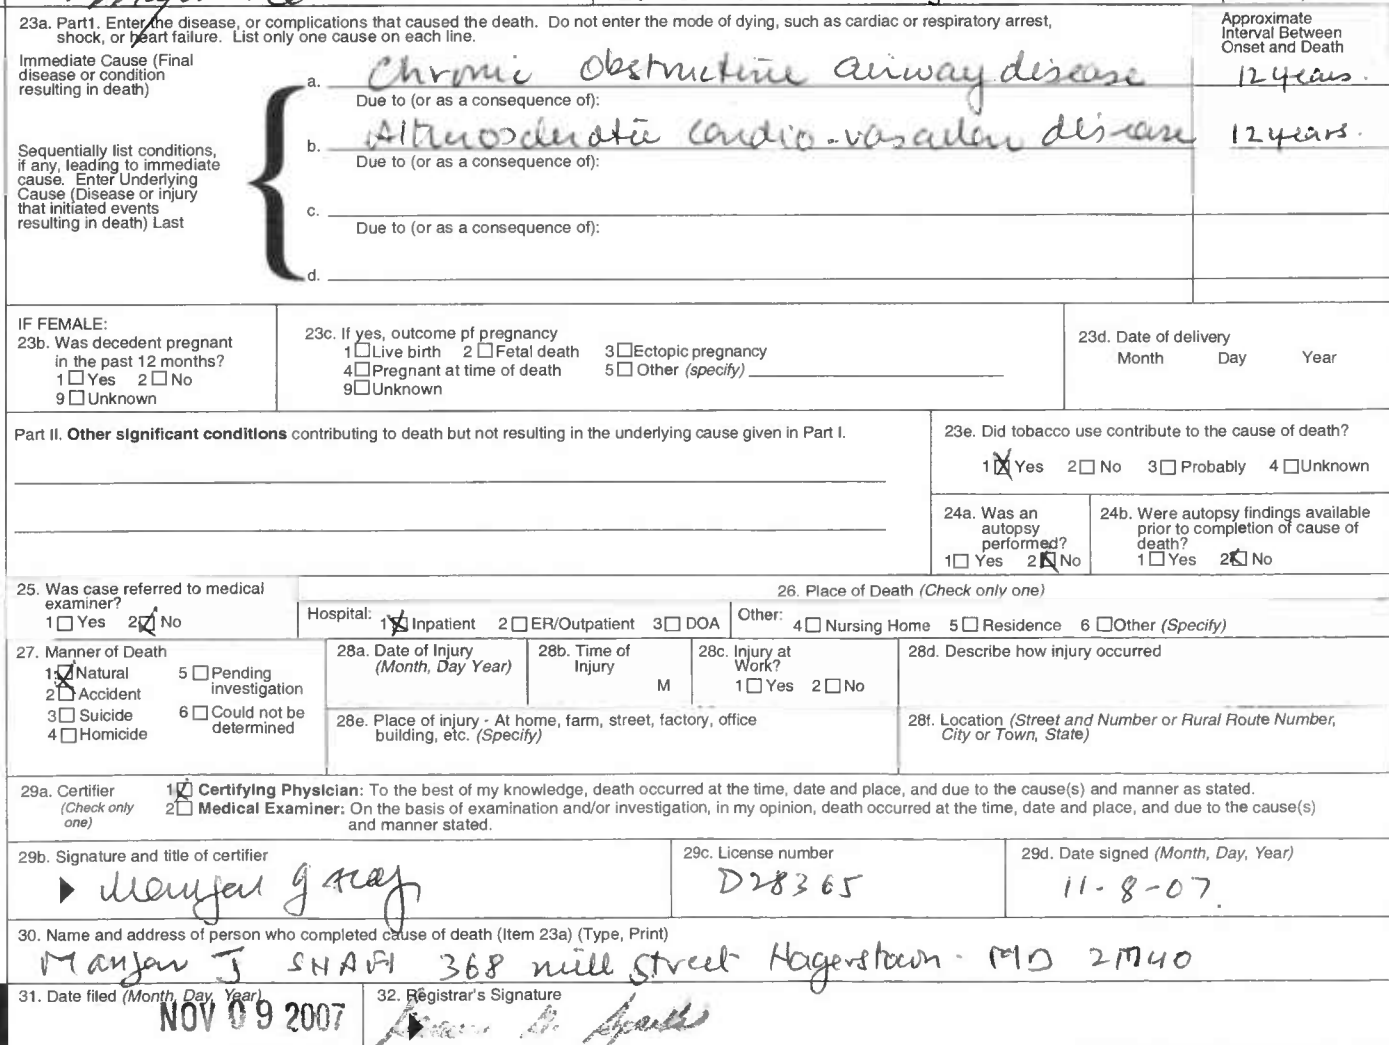 23a. Part1. Enter the disease, or complications that caused the death. Do not enter the mode of dying, such as cardiac or respiratory arrest,
shock, or heart failure. List only one cause on each line.
Approximate
Interval Between
Onset and Death
Immediate Cause (Final
disease or condition
resulting in death)
a. Chronic Obstructive airway disease 12 years.
Due to (or as a consequence of):
b. cardio-vascular disease 12 years.
Due to (or as a consequence of):
Sequentially list conditions,
if any, leading to immediate
cause. Enter Underlying
Cause (Disease or injury
that initiated events
resulting in death) Last
c.
Due to (or as a consequence of):
d.
IF FEMALE:
23b. Was decedent pregnant
in the past 12 months?
1 ☐ Yes 2 ☐ No
9 ☐ Unknown
23c. If yes, outcome pf pregnancy
1 ☐ Live birth 2 ☐ Fetal death 3 ☐ Ectopic pregnancy
4 ☐ Pregnant at time of death 5 ☐ Other (specify)
9 ☐ Unknown
23d. Date of delivery
Month Day Year
Part II. Other significant conditions contributing to death but not resulting in the underlying cause given in Part I.
23e. Did tobacco use contribute to the cause of death?
1 ☒ Yes 2 ☐ No 3 ☐ Probably 4 ☐ Unknown
24a. Was an
autopsy
performed?
1 ☐ Yes 2 ☒ No
24b. Were autopsy findings available
prior to completion of cause of
death?
1 ☐ Yes 2 ☒ No
25. Was case referred to medical
examiner?
1 ☐ Yes 2 ☒ No
26. Place of Death (Check only one)
Hospital: 1 ☒ Inpatient 2 ☐ ER/Outpatient 3 ☐ DOA Other: 4 ☐ Nursing Home 5 ☐ Residence 6 ☐ Other (Specify)
27. Manner of Death
1 ☒ Natural 5 ☐ Pending
investigation
2 ☐ Accident
3 ☐ Suicide 6 ☐ Could not be
determined
4 ☐ Homicide
28a. Date of Injury
(Month, Day Year)
28b. Time of
Injury
M
28c. Injury at
Work?
1 ☐ Yes 2 ☐ No
28d. Describe how injury occurred
28e. Place of injury - At home, farm, street, factory, office
building, etc. (Specify)
28f. Location (Street and Number or Rural Route Number,
City or Town, State)
29a. Certifier
(Check only
one)
1 ☒ Certifying Physician: To the best of my knowledge, death occurred at the time, date and place, and due to the cause(s) and manner as stated.
2 ☐ Medical Examiner: On the basis of examination and/or investigation, in my opinion, death occurred at the time, date and place, and due to the cause(s)
and manner stated.
29b. Signature and title of certifier
29c. License number
D28365
29d. Date signed (Month, Day, Year)
11-8-07.
30. Name and address of person who completed cause of death (Item 23a) (Type, Print)
J SHAFI 368 mill street Hagerstown. MD 21740
31. Date filed (Month, Day, Year)
NOV 09 2007
32. Registrar's Signature